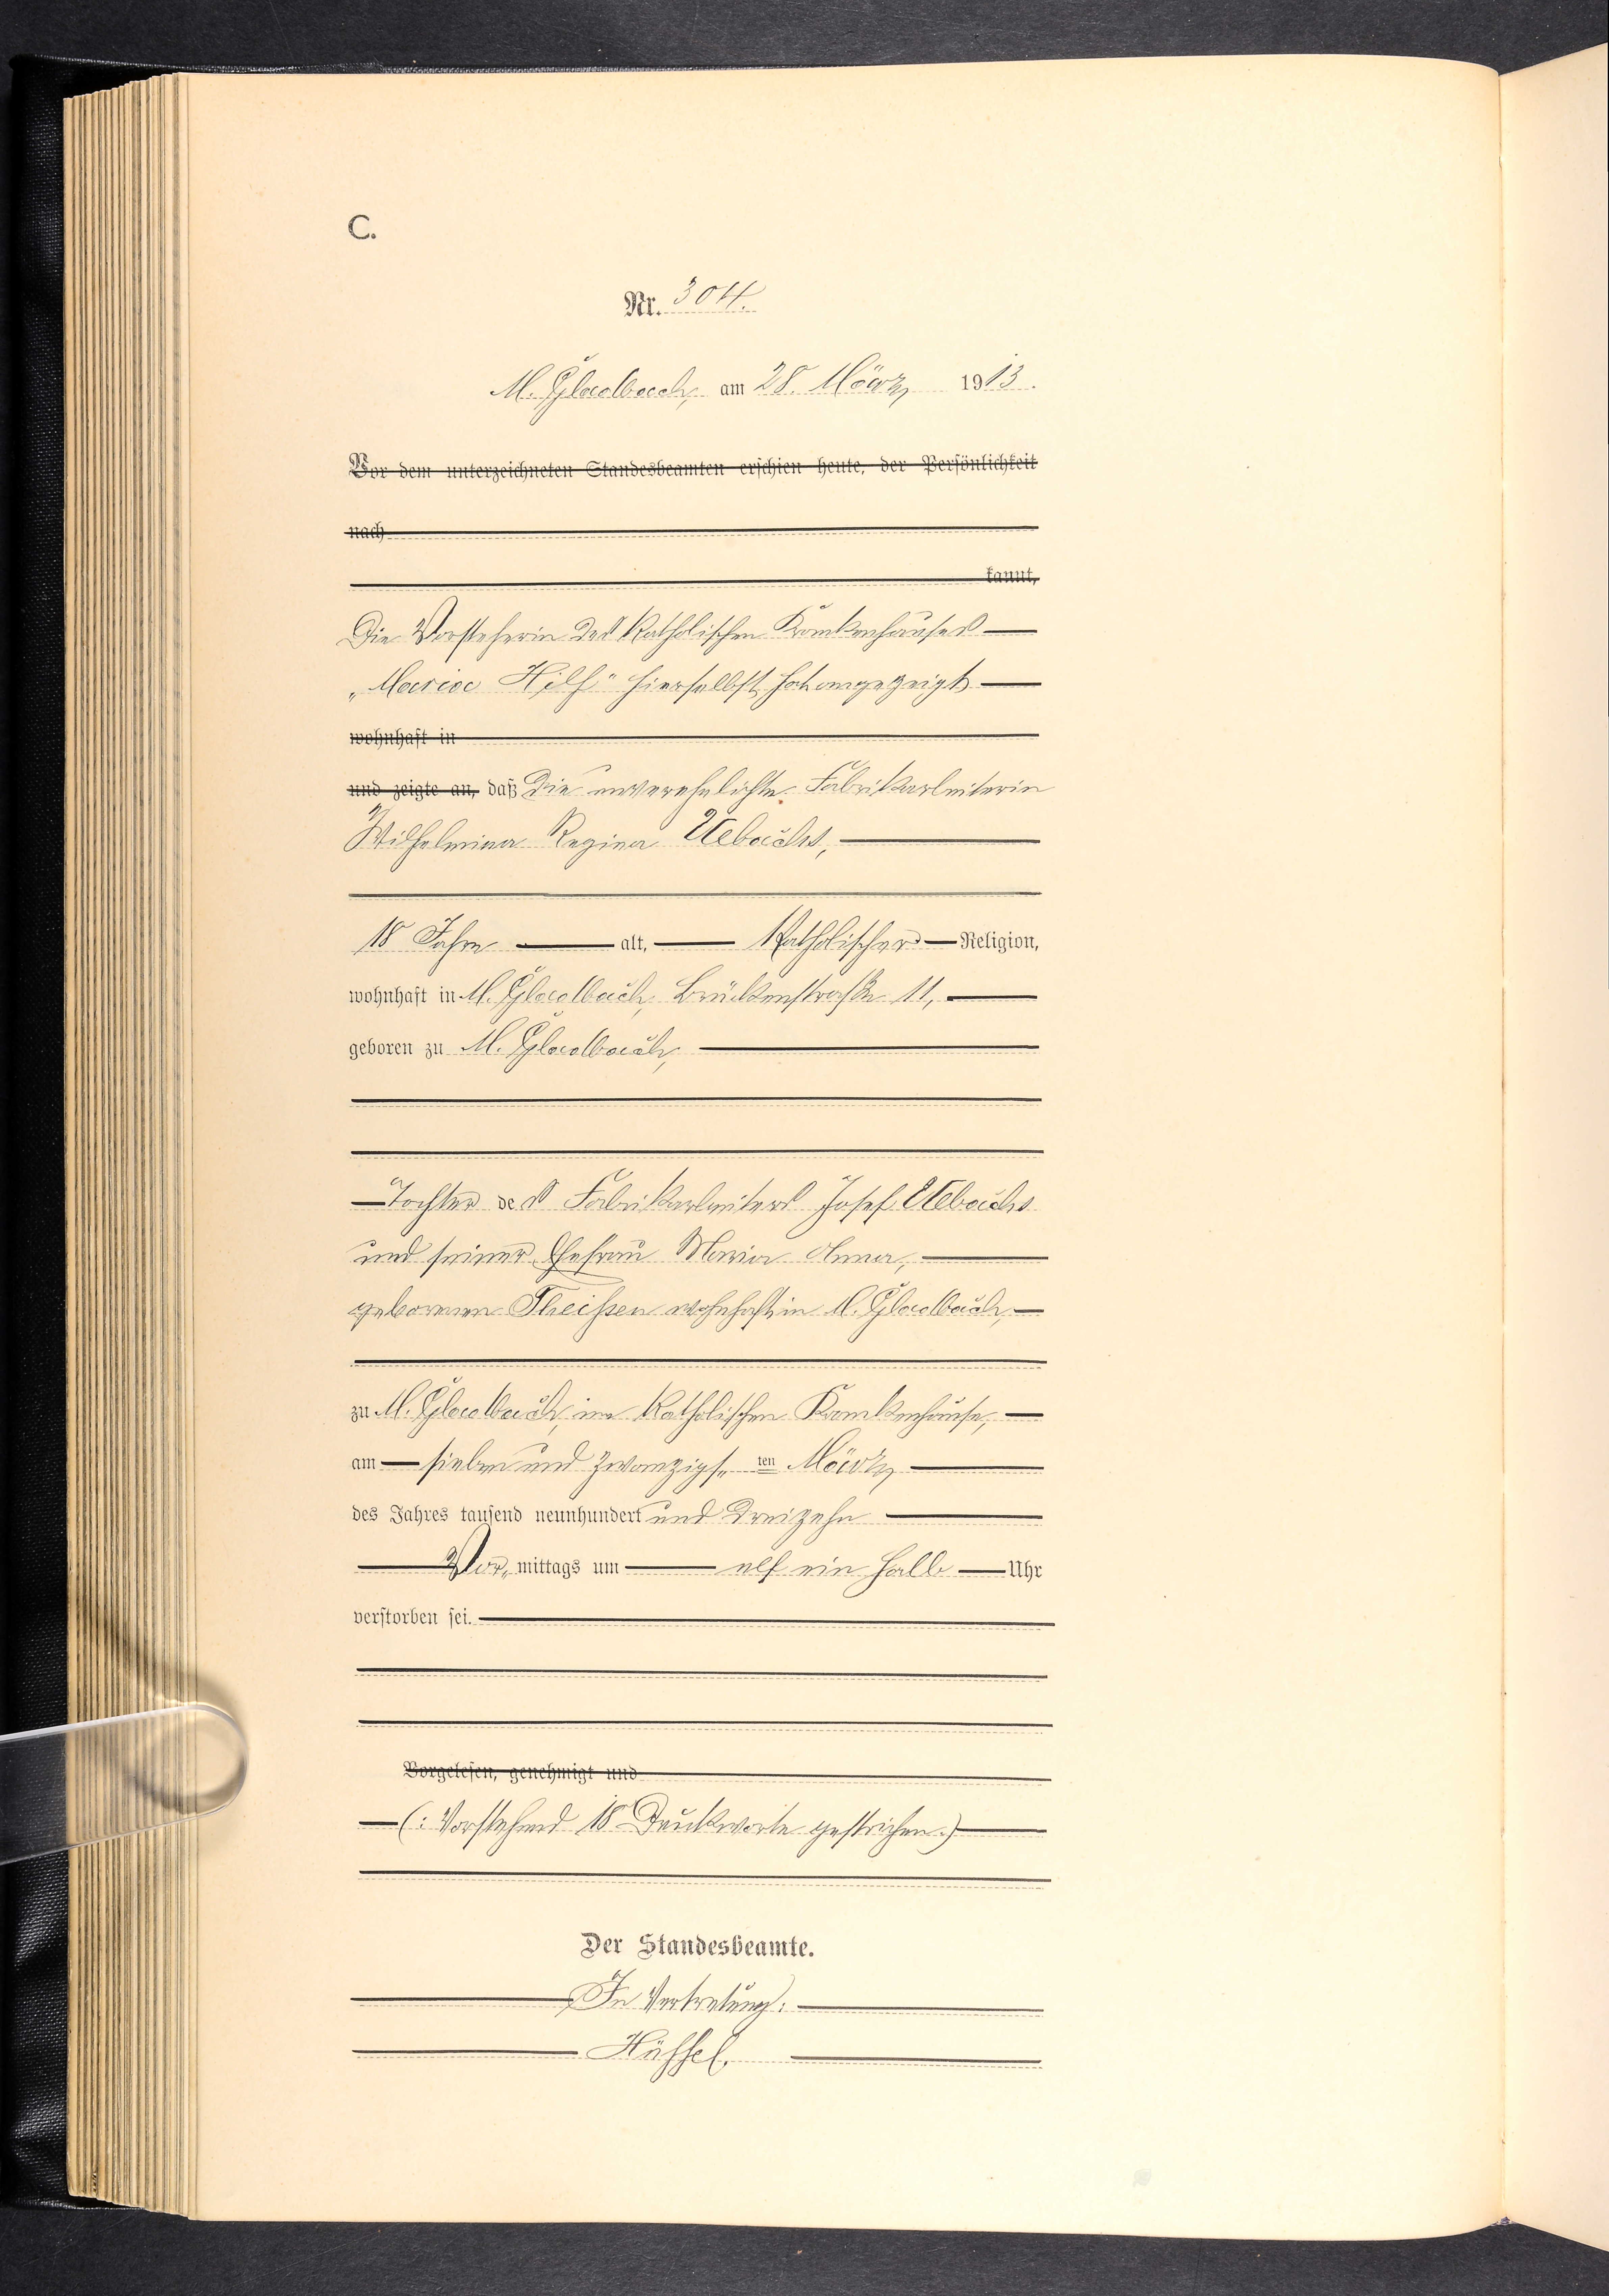 C.
Nr. 304.
M. Gladbach, am 28. März 1913.
Vor dem unterzeichneten Standesbeamten erschien heute, der Persönlichkeit
nach
kannt,
Die Vorsteherin des katholischen Krankenhauses
„Maria Hilf" hierselbst hat angezeigt
wohnhaft in
und zeigte an, daß die unverehelichte Fabrikarbeiterin
Wilhelmina Regina Uebachs,
18 Jahre alt, katholischer Religion,
wohnhaft in M. Gladbach, Brückenstraße 11,
geboren zu M. Gladbach,
Tochter des Fabrikarbeiters Josef Uebachs
und seiner Ehefrau Maria Anna,
geborenen Theißen wohnhaft in M. Gladbach,
zu M. Gladbach, im katholischen Krankenhause,
am sieben und zwanzigsten März
des Jahres tausend neunhundert und dreizehn
Vormittags um elf ein halb Uhr
verstorben sei.
Vorgelesen, genehmigt und
(: Vorstehend 18 Druckworte gestrichen.)
Der Standesbeamte.
In Vertretung: